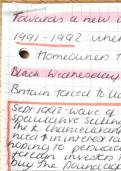 Towards a new
1991-1992 when
Homeowners
Black Wednesday
Britain forced to
Sept 1992 - wave of
speculative selling
The
put interest rates
hoping to persuade
foreign investors
buy the pound ag